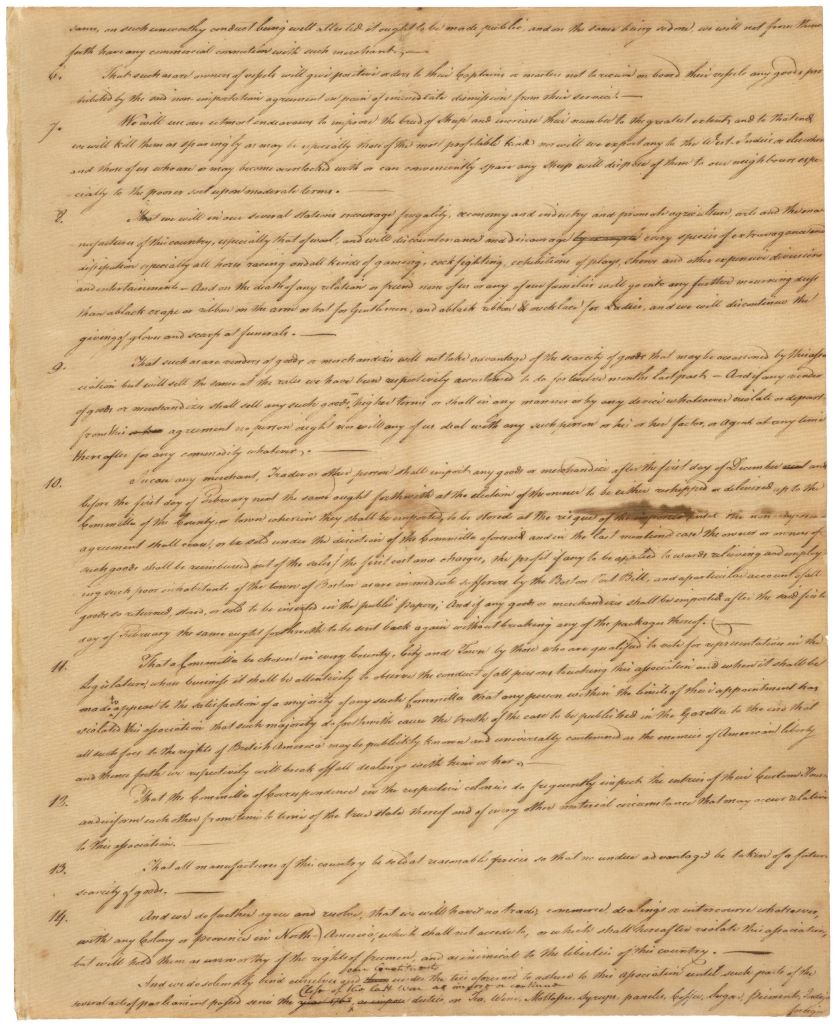 same, on such unworthy conduct being well attested it ought to be made public, and on the same being so done, we will not from thence
forth have any commercial connection with such merchant. —
6. That such as are owners of vessels will give positive orders to their Captains or masters not to receive on board their vessels any goods pro
hibited by the said non-importation agreement on pain of immediate dismission from their service. —
7. We will use our utmost endeavours to improve the breed of Sheep and increase their number to the greatest extent, and to that end
we will kill them as sparingly as may be especially those of the most profitable kind nor will we export any to the West Indies or elsewhere
and those of us who are or may become overstocked with or can conveniently spare any Sheep will dispose of them to our neighbours espe
cially to the poorer sort upon moderate terms. —
8. That we will in our several stations encourage frugality, oeconomy and industry and promote agriculture, arts and the ma
nufactures of this country, especially that of wool, and will discountenance and discourage every species of extravagance and
dissipation especially all horse racing and all kinds of gaming, cock fighting, exhibitions of plays, shews and other expensive diversions
and entertainments — And on the death of any relation or friend none of us or any of our families will go into any further mourning dress
than a black crape or ribbon on the arm or hat for Gentlemen, and a black ribbon & necklace for Ladies, and we will discontinue the
giving of gloves and scarfs at funerals. —
9. That such as are venders of goods or merchandizes will not take advantage of the scarcity of goods that may be occasioned by this asso
ciation but will sell the same at the rates we have been respectively accustomed to do for twelve months last past — And if any vender
of goods or merchandizes shall sell any such goods on higher terms or shall in any manner or by any device whatsoever violate or depart
from this agreement no person ought nor will any of us deal with any such person or his or her factor, or Agent at any time
thereafter for any commodity whatever. —
10. In case any merchant, Trader or other person shall import any goods or merchandize after the first day of December and
before the first day of February next the same ought forthwith at the election of the owner to be either reshipped or delivered up to the
Committee of the County, or town wherein they shall be imported, to be stored at the risque of the importer until the non importation
agreement shall cease, or be sold under the direction of the Committee aforesaid and in the last mentioned case the owner or owners of
such goods shall be reimbursed out of the sales, the first cost and charges, the profit if any to be applied towards relieving and employ
ing such poor inhabitants of the town of Boston as are immediate sufferers by the Boston Port Bill, and a particular account of all
goods so returned, stored, or sold to be inserted in the public Papers; And if any goods or merchandizes shall be imported after the said first
day of February the same ought forthwith to be sent back again without breaking any of the packages thereof. —
11. That a Committee be chosen in every County, City and Town by those who are qualified to vote for representatives in the
Legislature, whose business it shall be attentively to observe the conduct of all persons touching this association and when it shall be
made to appear to the satisfaction of a majority of any such Committee that any person within the limits of their appointment has
violated this association that such majority do forthwith cause the truth of the case to be published in the Gazette to the end that
all such foes to the rights of British America may be publickly known and universally contemned as the enemies of American liberty
and thence forth we respectively will break off all dealings with him or her. —
12. That the Committee of Correspondence in the respective colonies do frequently inspect the entries of their Custom Houses
and inform each other from time to time of the true state thereof and of every other material circumstance that may occur relative
to this association. —
13. That all manufactures of this country be sold at reasonable prices so that no undue advantage be taken of a future
scarcity of goods. —
14. And we do farther agree and resolve, that we will have no trade, commerce, dealings or intercourse whatsoever,
with any Colony or province in North America, which shall not accede to, or which shall hereafter violate this association,
but will hold them as unworthy of the rights of freemen, and as inimical to the liberties of this country. —
our constituents
And we do solemnly bind ourselves and under the ties aforesaid to adhere to this association until such parts of the
close of the last war as impose or continue
several acts of parliament passed since the duties on Tea, Wine, Molasses, Syrups, paneles, Coffee, Sugar, Piemento, Indigo
foreign